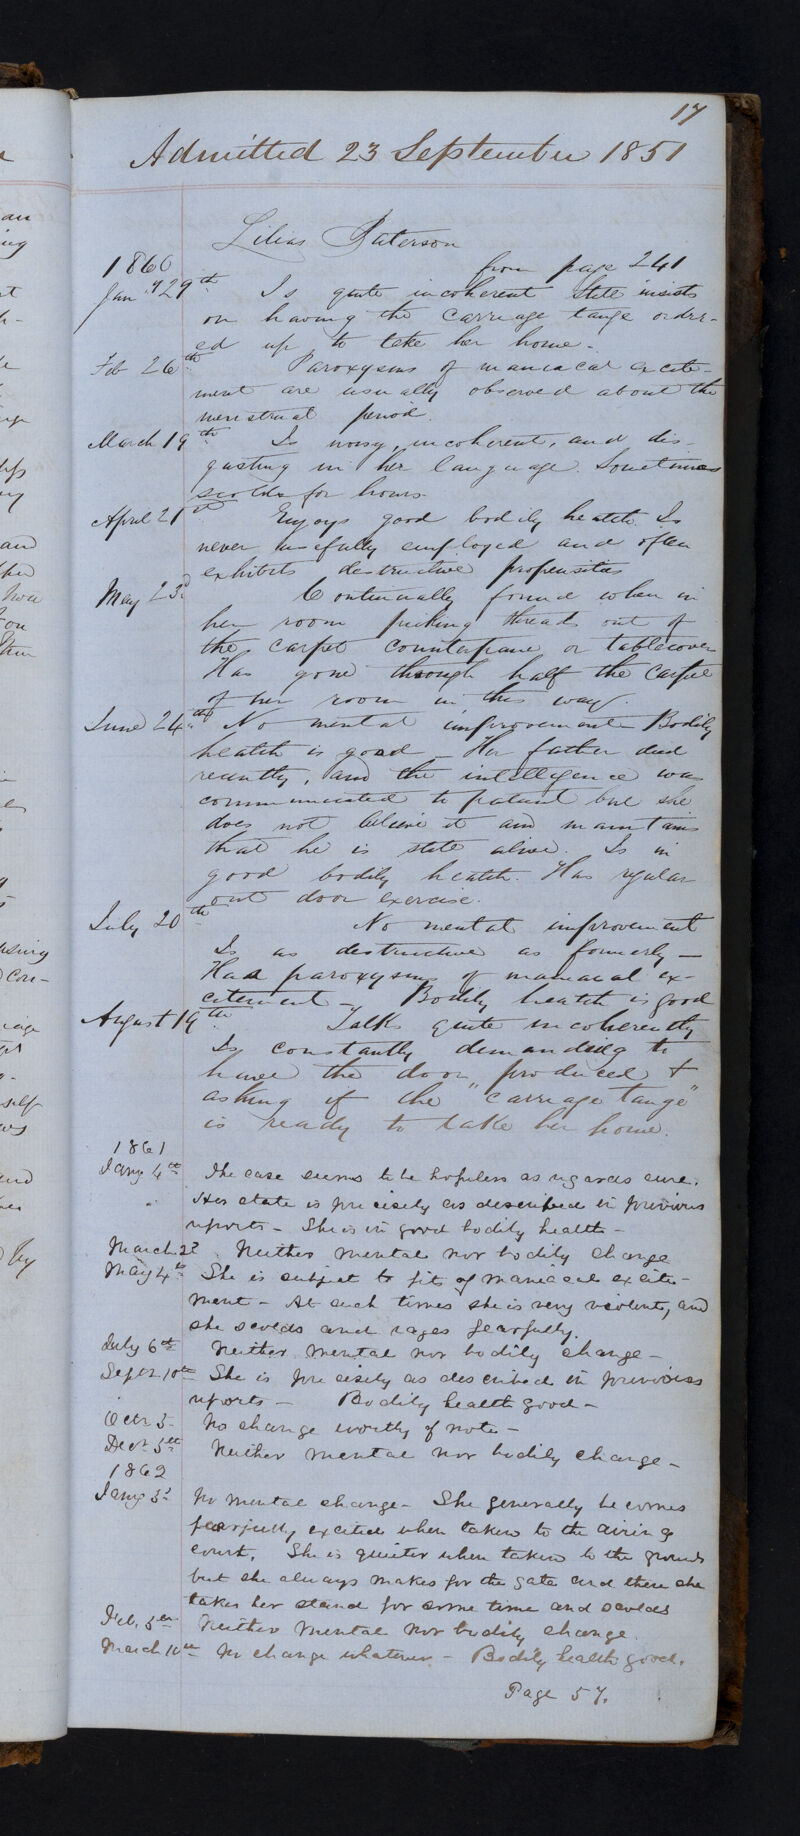 17
Admitted 23 September 1851
Lilias Paterson
1860 from page 241
Jany 29th Is quite incoherent still insists
on having the carriage tange order-
ed up to take her home -
Feb 26th Paroxysms of maniacal excite-
ment are usually observed about the
menstrual period.
March 19th Is noisy, incoherent, and dis-
gusting in her language. Sometimes
scolds for hours.
April 21st Enjoys good bodily health. Is
never usefully employed and often
exhibits destructive propensities
May 23d Continually found when in
her room picking threads out of
the carpet counterpane or tablecover
Has gone through half the carpet
of her room in this way.
June 24th No mental improvement Bodily
health is good - Her father died
recently, and the intelligence was
communicated to patient but she
does not believe it and maintains
that he is still alive. Is in
good bodily health. Has regular
out door exercise.
July 20th No mental improvement
Is as destructive as formerly -
Has paroxysms of maniacal ex-
citement - Bodily health is good
August 19th Talks quite incoherently
Is constantly demanding to
have the door produced &
asking if the "carriage tange"
is ready to take her home.
1861
Jany 4th The case seems to be hopeless as regards cure.
Her state is precisely as described in previous
reports - She is in good bodily health -
March 2d Neither mental nor bodily change
May 4th She is subject to fits of maniacal excite-
ment - At such times she is very violent, and
she scolds and rages fearfully.
July 6th Neither mental nor bodily change -
Septr 10th She is precisely as described in previous
reports - Bodily health good -
Octr 5 No change worthy of note -
Decr 5th Neither mental nor bodily change -
1862
Jany 3d No mental change - She generally becomes
fearfully excited when taken to the airing
court. She is quieter when taken to the grounds
but she always makes for the gate and there she
takes her stand for some time and scolds
Feb. 5th Neither mental nor bodily change.
March 10th No change whatever - Bodily health good.
Page 57.